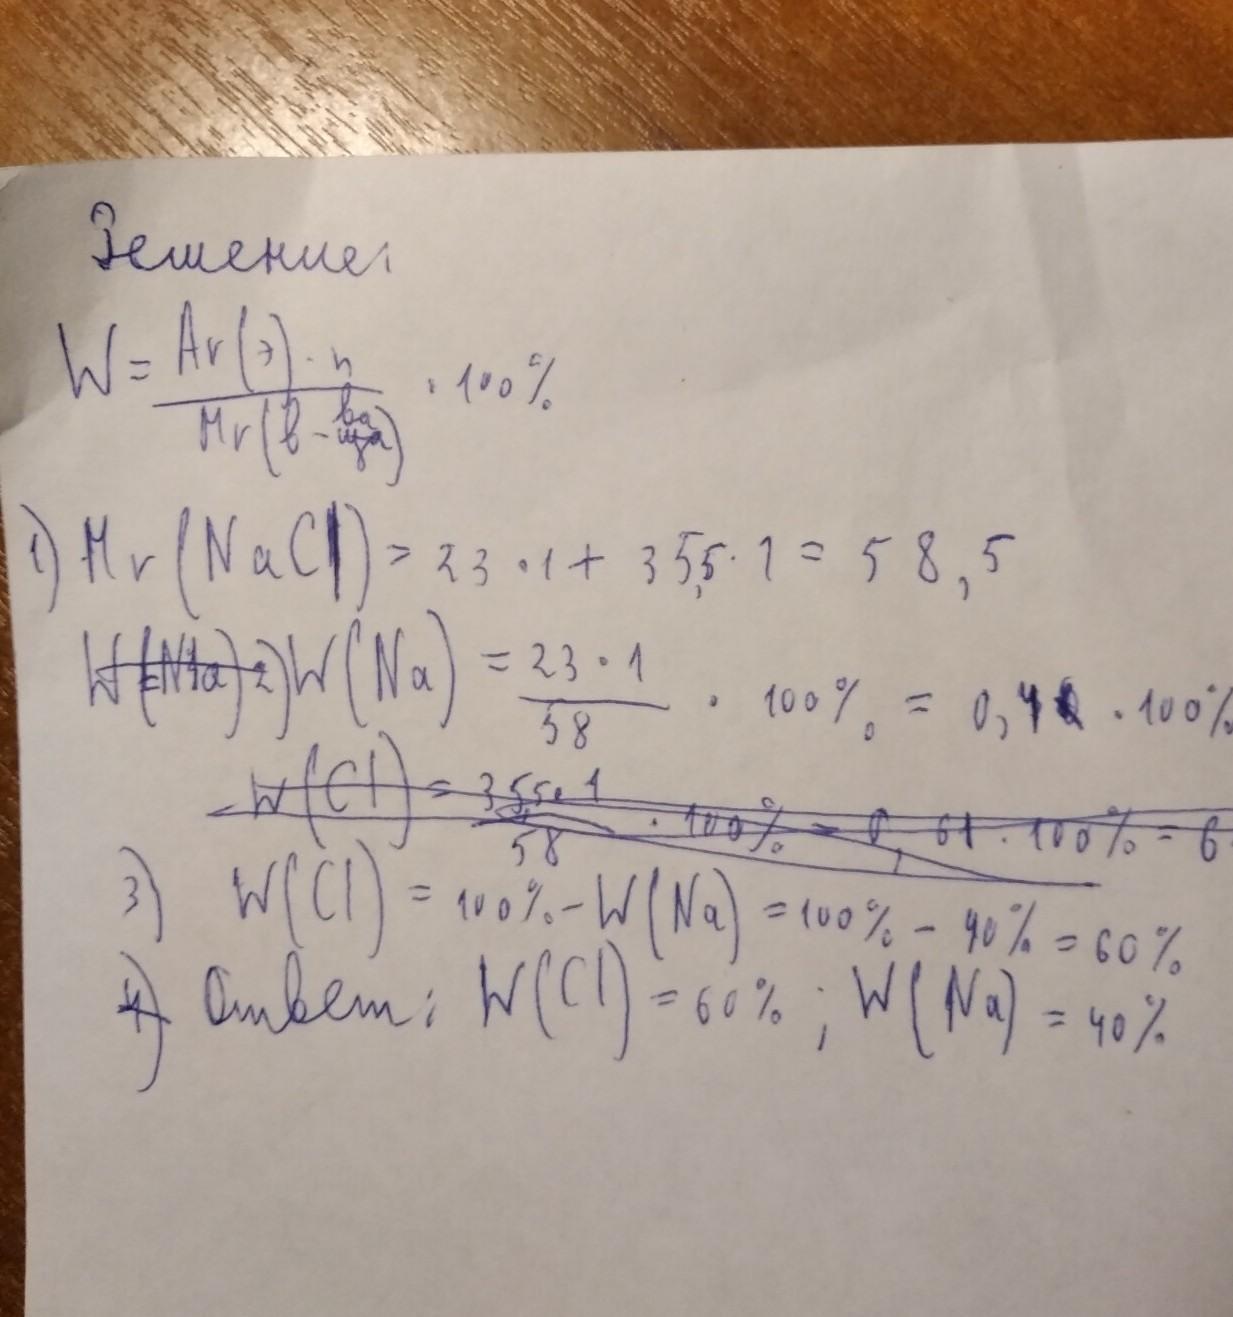 Решение:
W = Ar(э) · n / Mr(в-ва) · 100%
1) Mr(NaCl) = 23 · 1 + 35,5 · 1 = 58,5
W(Na) 2) W(Na) = 23 · 1 / 58 · 100% = 0,4 · 100%
W(Cl) = 35,5 · 1 / 58 · 100% = 0,61 · 100% = 6
3) W(Cl) = 100% - W(Na) = 100% - 40% = 60%
4) Ответ: W(Cl) = 60% ; W(Na) = 40%